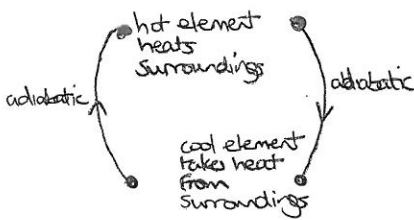 hot element
heats
surroundings
adiabatic
adiabatic
cool element
takes heat
from
surroundings